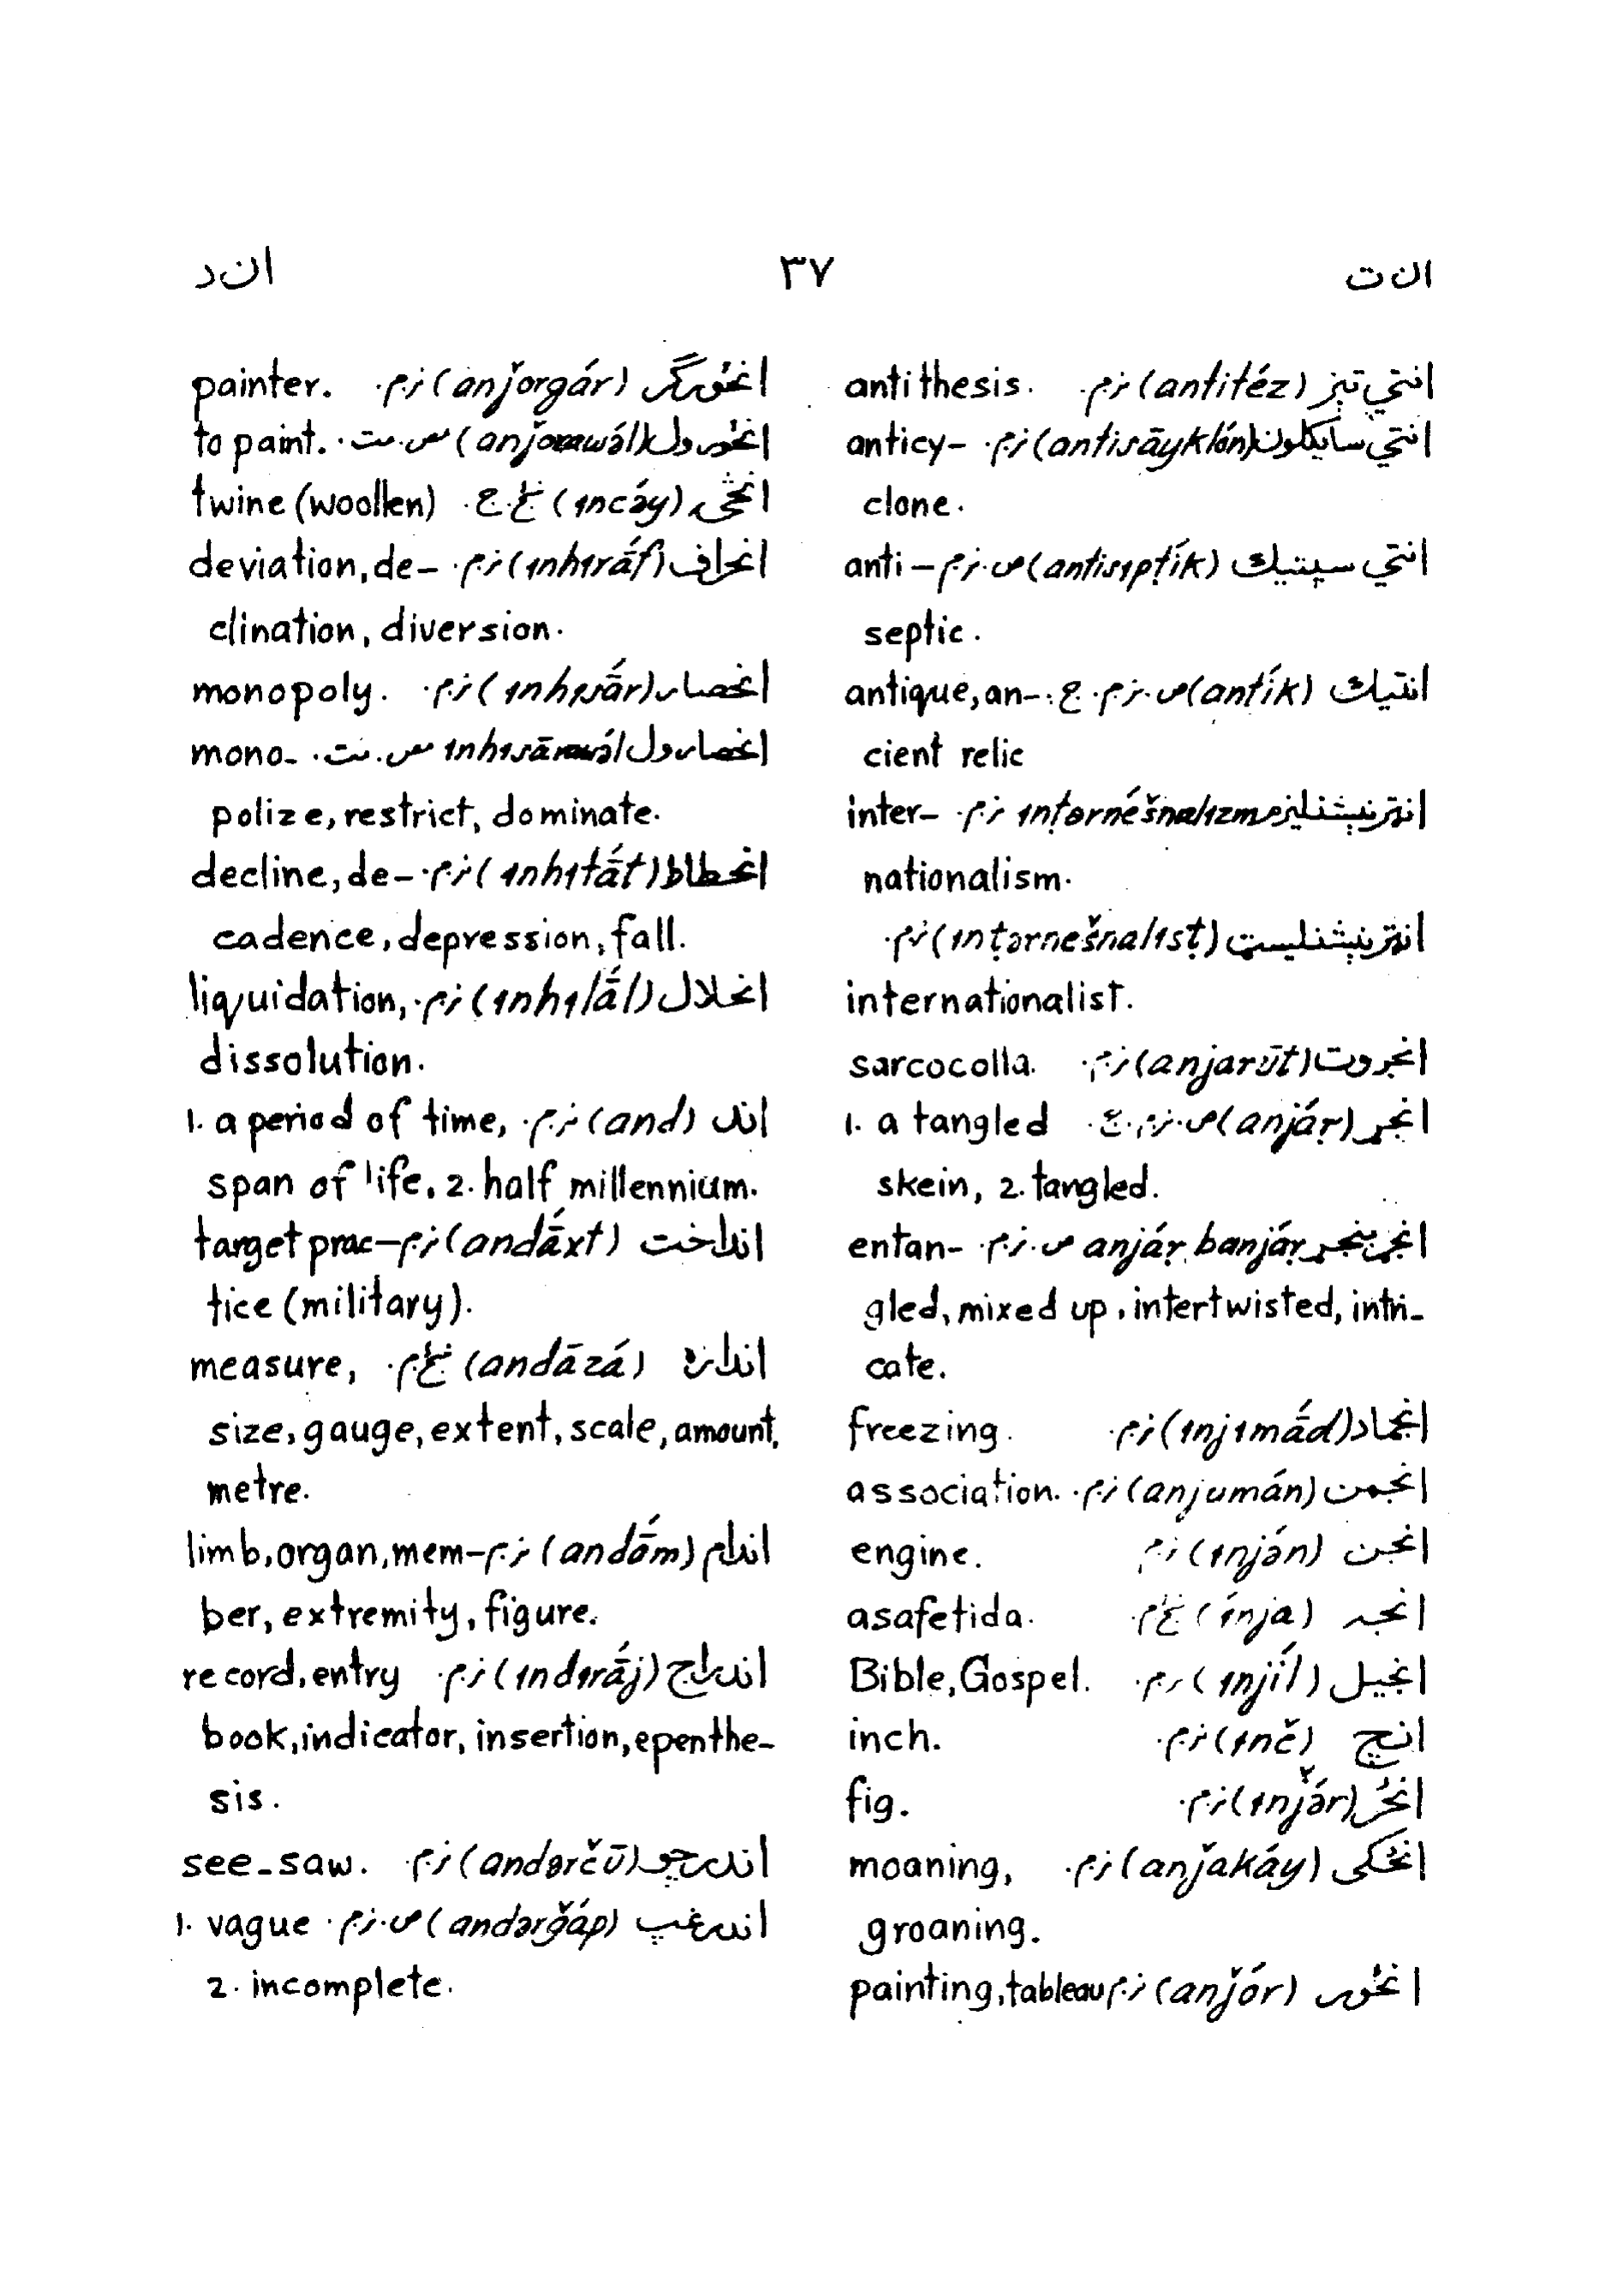 ان ت ۳۷ ان د
انتي تېز (antitéz) ن.م. antithesis.
انتي سایکلون (antisāyklón) ن.م. anticy-
clone.
انتي سپتیک (antisıptík) ص.ن.م. anti-
septic.
انتیک (antík) ص.ن.م.ج.: antique, an-
cient relic
انټرنېشنلیزم ınṭərnéšnalızm ن.م. inter-
nationalism.
انټرنېشنلیست (ınṭərnešnalıst) ن.م.
internationalist.
انجروت (anjarūt) ن.م. sarcocolla.
انجړ (anjáṛ) ص.ن.م.ج. 1. a tangled
skein, 2. tangled.
انجړبنجړ anjáṛ banjáṛ ص.ن.م. entan-
gled, mixed up, intertwisted, intri-
cate.
انجماد (ınjımā́d) ن.م. freezing.
انجمن (anjumán) ن.م. association.
انجن (ınjə́n) ن.م engine.
انجه (ínja) ښځ.م. asafetida.
انجیل (ınjíl) ن.م. Bible, Gospel.
انچ (ınč) ن.م. inch.
انځر (ınǰə́r) ن.م. fig.
انځکی (anǰakáy) ن.م. moaning,
groaning.
انځور (anǰór) ن.م painting, tableau
انځورګر (anǰorgár) ن.م. painter.
انځورول (anǰorawə́l) س.مت. to paint.
انځۍ (ıncə́y) ښځ.ج. twine (woollen)
انحراف (ınhırā́f) ن.م. deviation, de-
clination, diversion.
انحصار (ınhısā́r) ن.م. monopoly.
انحصارول ınhısārawə́l س.مت. mono-
polize, restrict, dominate.
انحطاط (ınhıtā́t) ن.م. decline, de-
cadence, depression, fall.
انحلال (ınhılā́l) ن.م. liquidation,
dissolution.
اند (and) ن.م. 1. a period of time,
span of life. 2. half millennium.
انداخت (andā́xt) ن.م target prac-
tice (military).
اندازه (andāzá) ښځ.م. measure,
size, gauge, extent, scale, amount,
metre.
اندام (andā́m) ن.م limb, organ, mem-
ber, extremity, figure.
اندراج (ındırā́j) ن.م. record, entry
book, indicator, insertion, epenthe-
sis.
اندرچو (andərčū) ن.م. see-saw.
اندرغپ (andərğáp) ص.ن.م. 1. vague
2. incomplete.